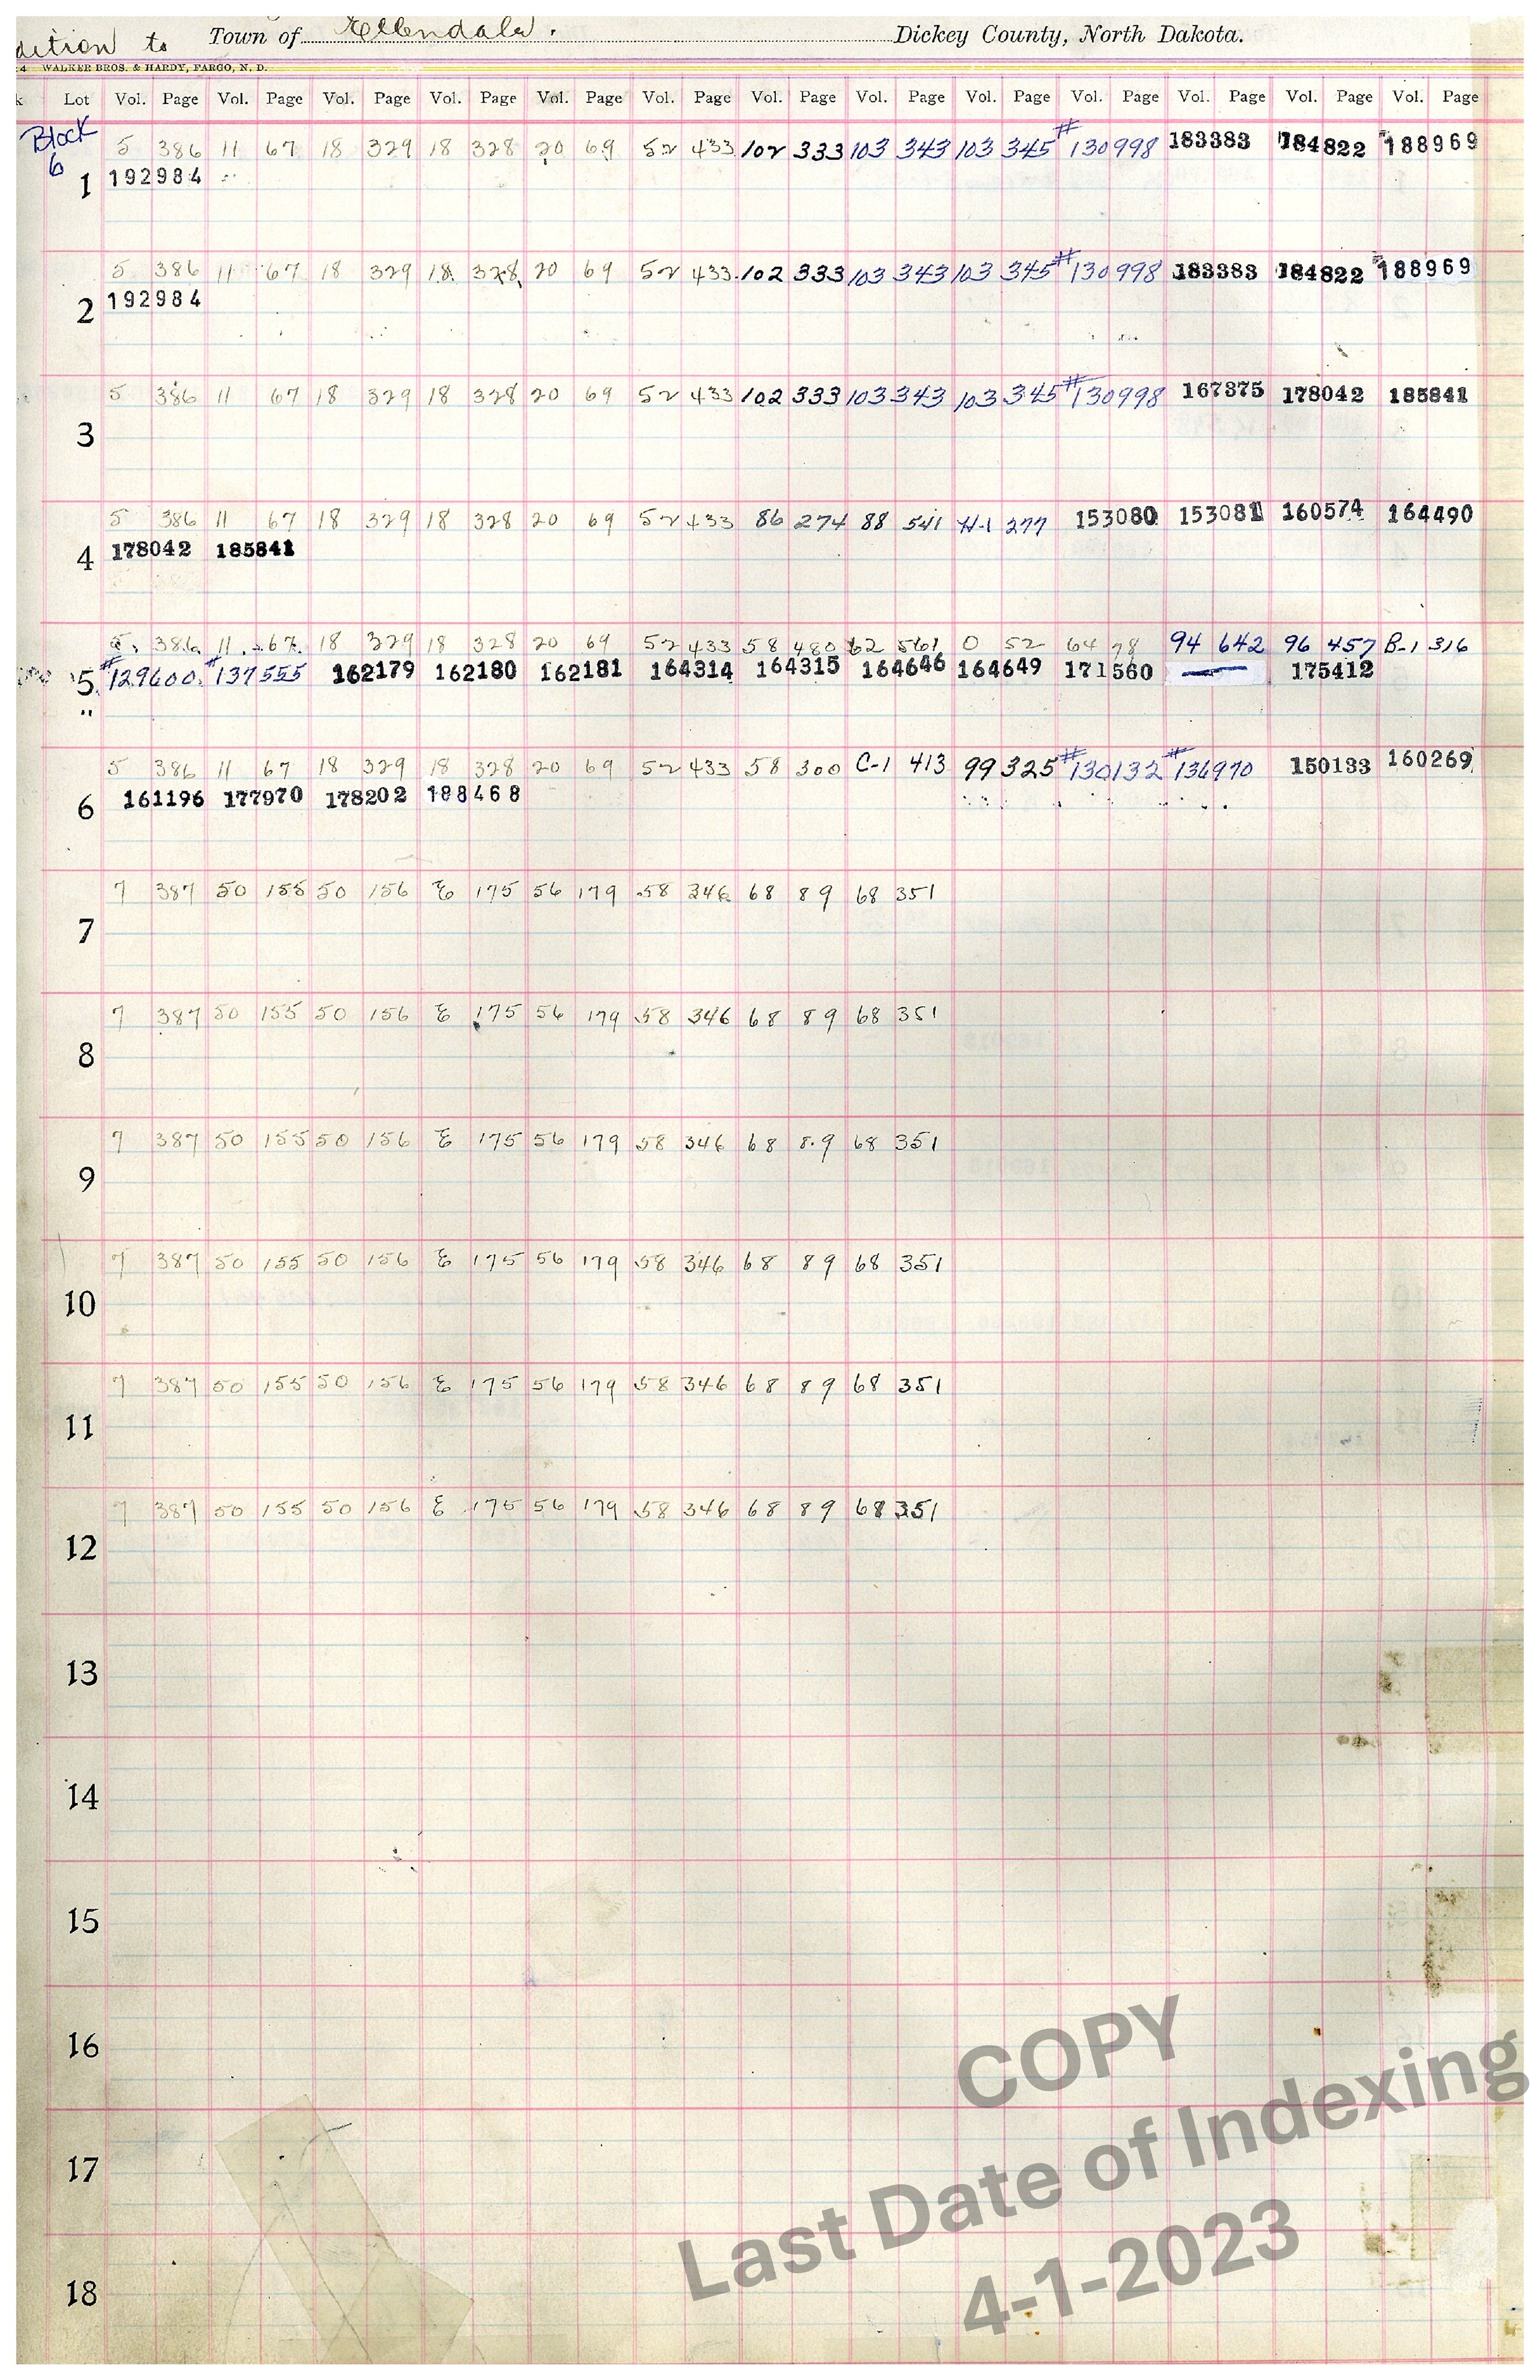 dition to Town of Ellendale. Dickey County, North Dakota.
4 WALKER BROS. & HARDY, FARGO, N. D.
k Lot Vol. Page Vol. Page Vol. Page Vol. Page Vol. Page Vol. Page Vol. Page Vol. Page Vol. Page Vol. Page Vol. Page Vol. Page Vol. Page
Block
6
5 386 11 67 18 329 18 328 20 69 52 433 102 333 103 343 103 345 #130998 183383 184822 188969
1 192984
5 386 11 67 18 329 18 328 20 69 52 433 102 333 103 343 103 345 #130998 183383 184822 188969
2 192984
5 386 11 67 18 329 18 328 20 69 52 433 102 333 103 343 103 345 #130998 167375 178042 185841
3
5 386 11 67 18 329 18 328 20 69 52 433 86 274 88 541 H-1 277 153080 153081 160574 164490
4 178042 185841
5 386 11 67 18 329 18 328 20 69 52 433 58 480 62 561 0 52 64 98 94 642 96 457 B-1 316
5 #129600 #137555 162179 162180 162181 164314 164315 164646 164649 171560 175412
"
5 386 11 67 18 329 18 328 20 69 52 433 58 300 C-1 413 99 325 #130132 #136970 150133 160269
6 161196 177970 178202 188468
7 387 50 155 50 156 E 175 56 179 58 346 68 89 68 351
7
7 387 50 155 50 156 E 175 56 179 58 346 68 89 68 351
8
7 387 50 155 50 156 E 175 56 179 58 346 68 89 68 351
9
7 387 50 155 50 156 E 175 56 179 58 346 68 89 68 351
10
7 387 50 155 50 156 E 175 56 179 58 346 68 89 68 351
11
7 387 50 155 50 156 E 175 56 179 58 346 68 89 68 351
12
13
14
15
16
17
18
COPY
Last Date of Indexing
4-1-2023